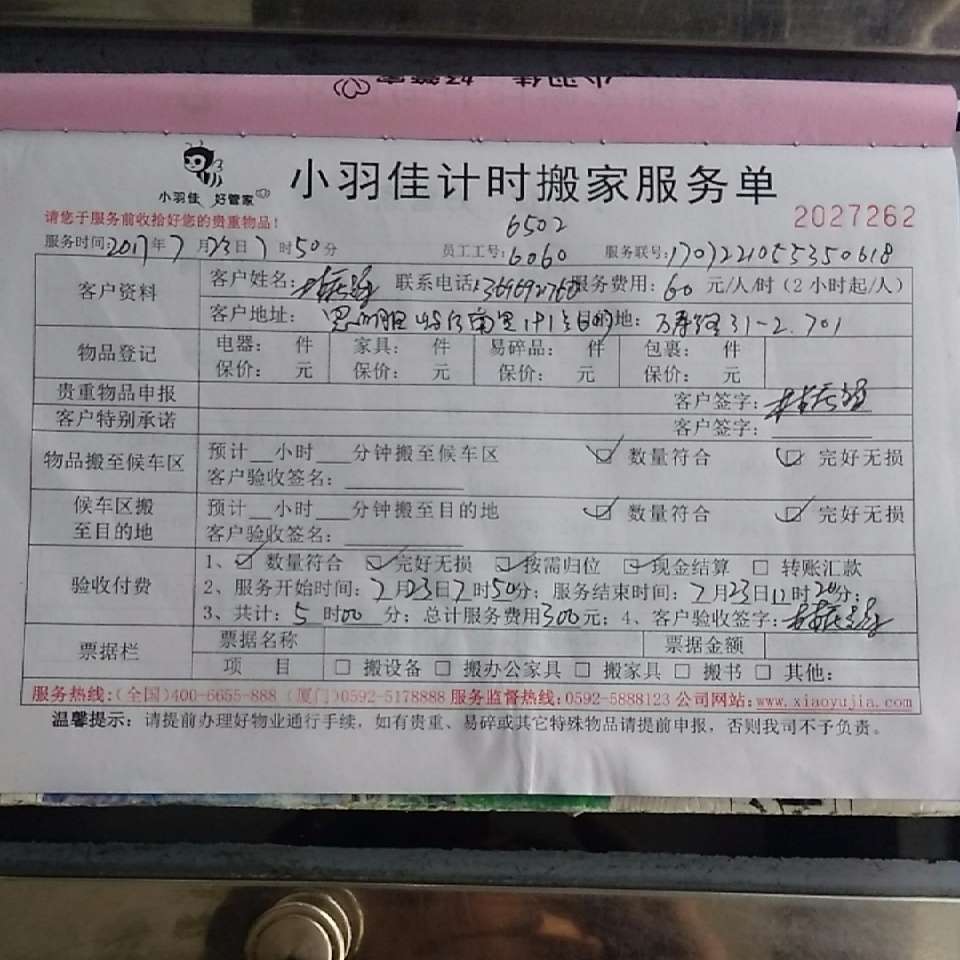 小羽佳 好管家
小羽佳计时搬家服务单
2027262
请您于服务前收拾好您的贵重物品!
6502
服务时间:2017年7月23日7时50分 员工工号:6060 服务联号:1707221055350618
客户资料 客户姓名: 联系电话: 服务费用:60元/人/时(2小时起/人)
客户地址: 目的地: 31-2.701
物品登记 电器: 件 家具: 件 易碎品: 件 包裹: 件
保价: 元 保价: 元 保价: 元 保价: 元
贵重物品申报 客户签字:
客户特别承诺 客户签字:
物品搬至候车区 预计__小时___分钟搬至候车区 ☑ 数量符合 ☑ 完好无损
客户验收签名:
候车区搬至目的地 预计__小时___分钟搬至目的地 ☑ 数量符合 ☑ 完好无损
客户验收签名:
验收付费 1、☑ 数量符合 ☑ 完好无损 ☑ 按需归位 ☑ 现金结算 □ 转账汇款
2、服务开始时间:7月23日7时50分; 服务结束时间:7月23日12时20分;
3、共计:5时00分;总计服务费用300元; 4、客户验收签字:
票据栏 票据名称 票据金额
项 目 □ 搬设备 □ 搬办公家具 □ 搬家具 □ 搬书 □ 其他:
服务热线:(全国)400-6655-888 (厦门)0592-5178888 服务监督热线:0592-5888123 公司网站:www.xiaoyujia.com
温馨提示: 请提前办理好物业通行手续,如有贵重、易碎或其它特殊物品请提前申报,否则我司不予负责。